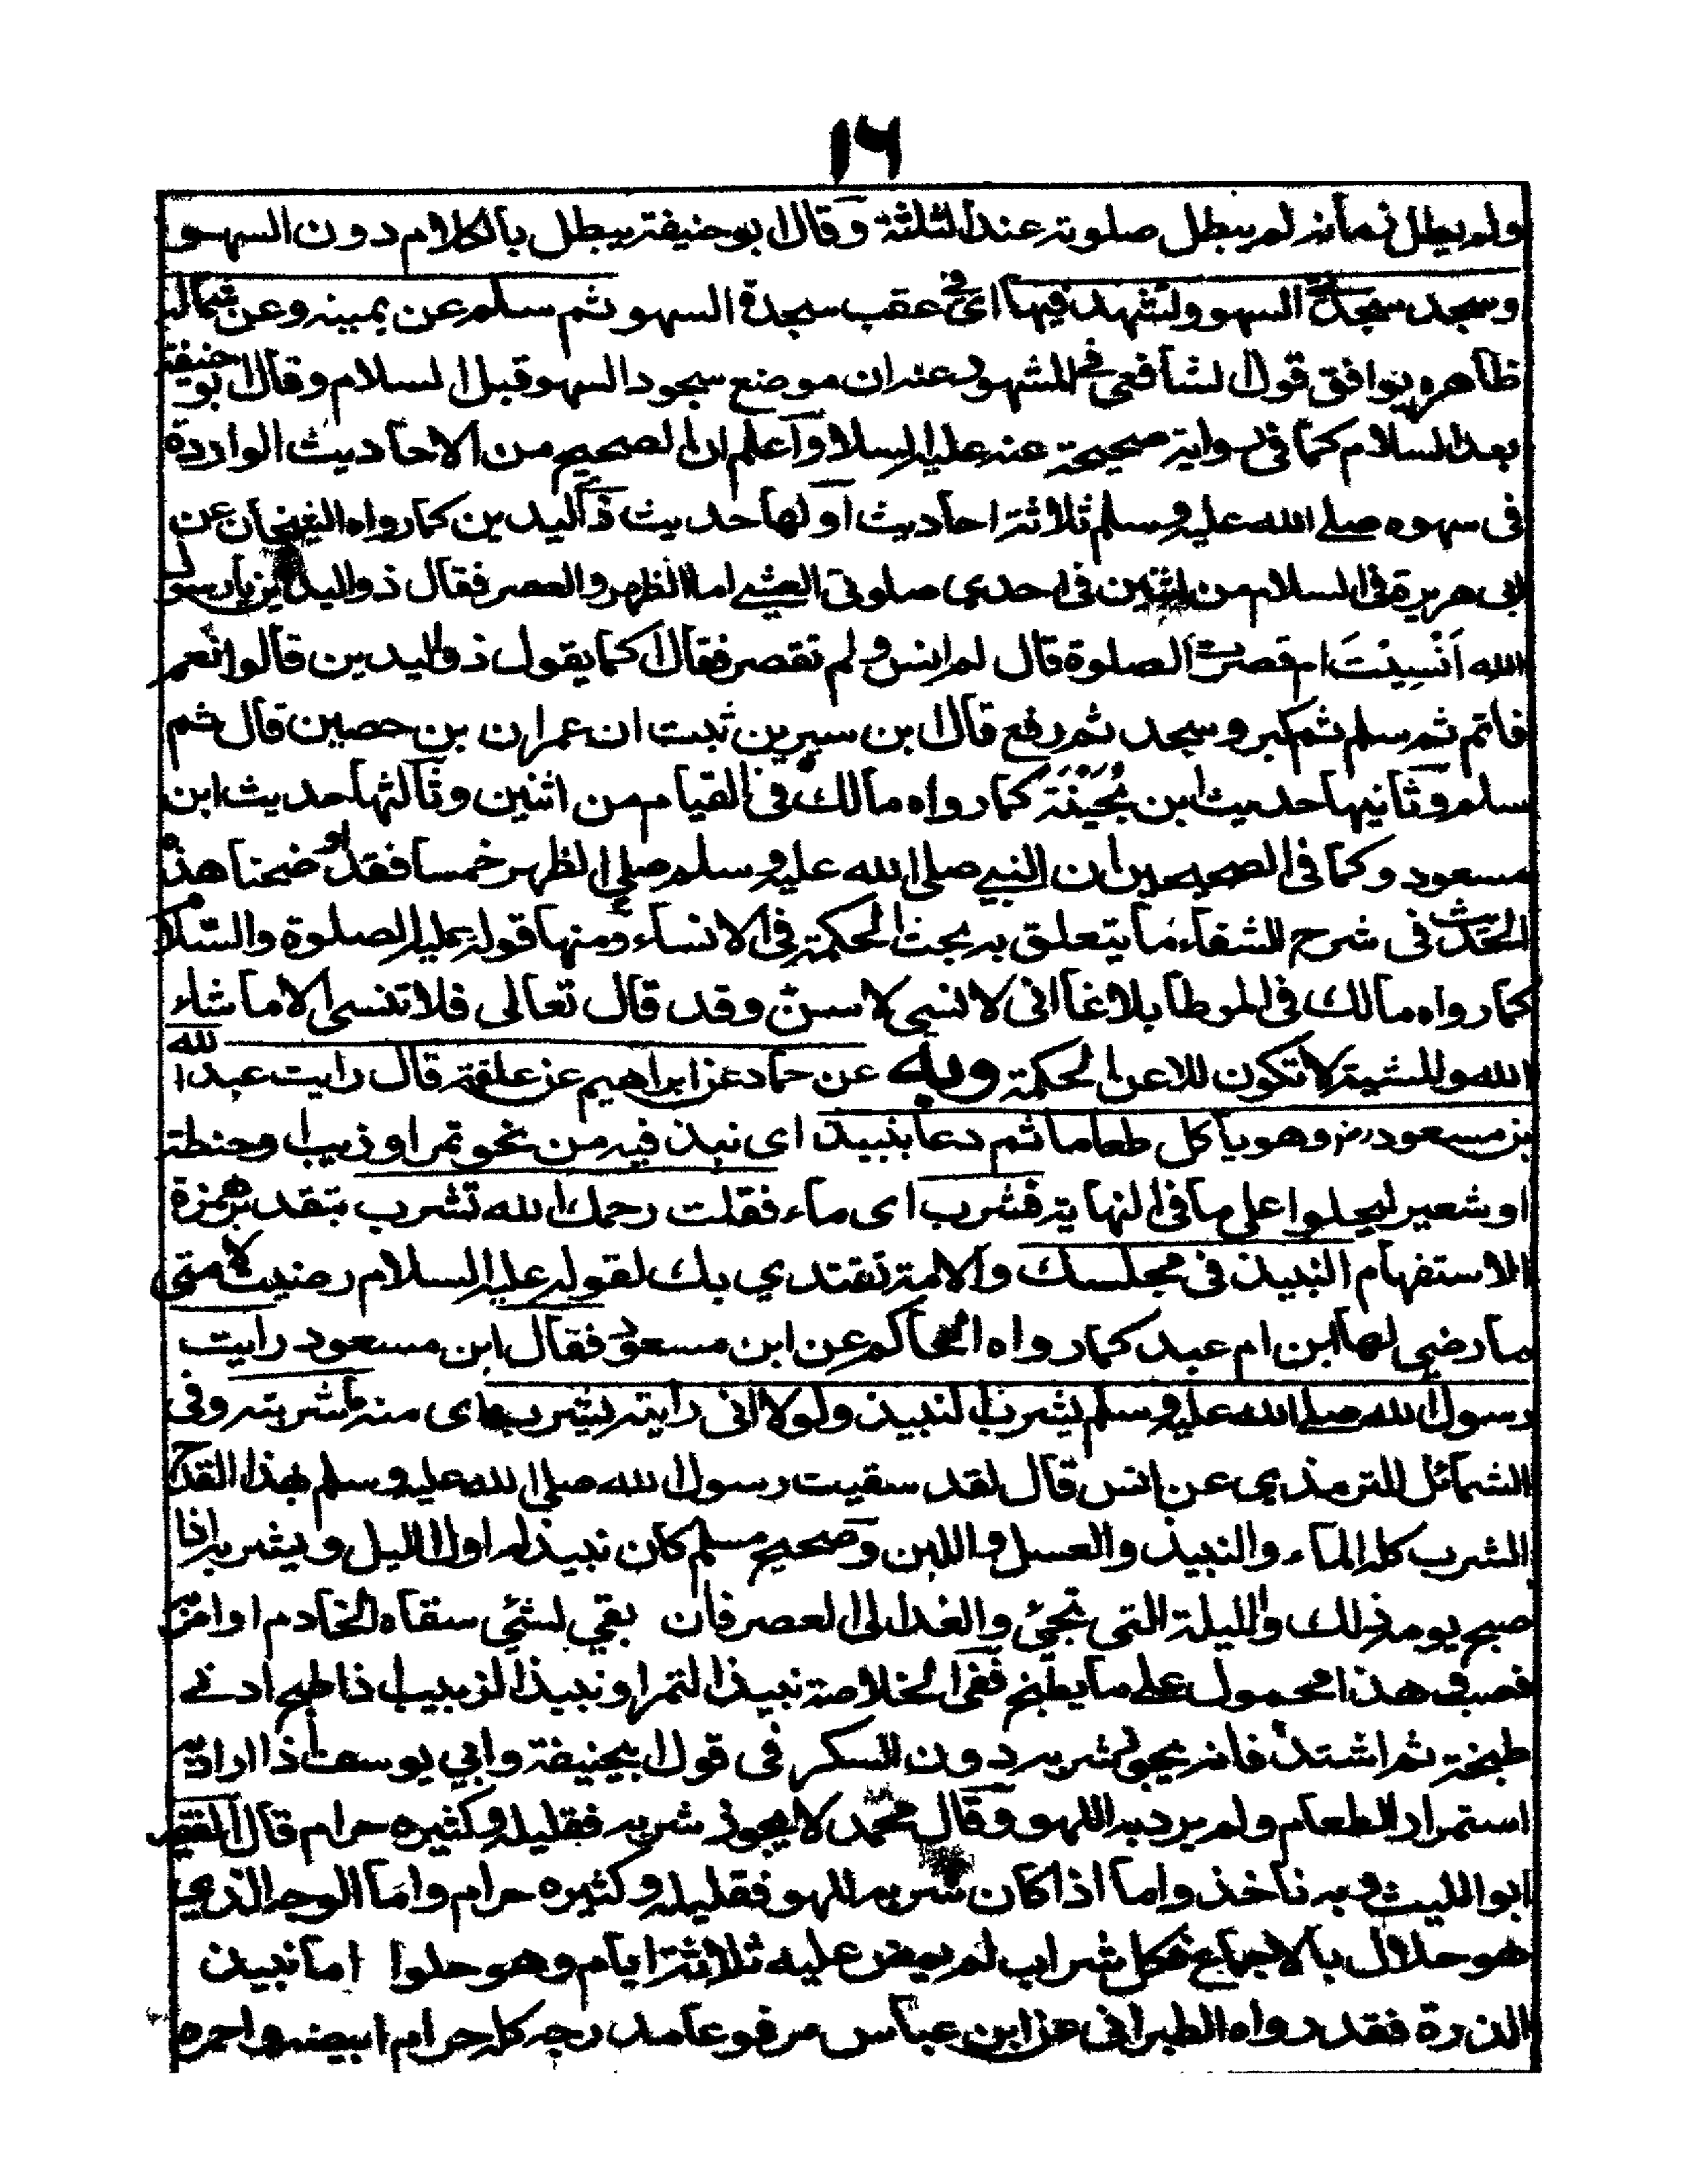 ١٦
ولم يطل زمانه لم يبطل صلوته عند الثلثة وقال ابو حنيفة يبطل بالكلام دون السهو
وسجد سجدتى السهو وتشهد فيها اى فى عقب سجدة السهو ثم سلم عن يمينه وعن شماله
ظاهره يوافق قول الشافعى فى المشهور عنه ان موضع سجود السهو قبل السلام وقال ابو حنيفة
بعد السلام كما فى رواية صحيحة عنه عليه السلام واعلم ان الصحيح من الاحاديث الواردة
فى سهوه صلى الله عليه وسلم ثلاثة احاديث اولها حديث ذى اليدين كما رواه الشيخان عن
ابى هريرة فى السلام من اثنتين فى احدى صلوتى العشى اما الظهر والعصر فقال ذو اليدين يا رسول
الله اَنَسِيْتَ ام قصرت الصلوة قال لم انس ولم تقصر فقال اكما يقول ذو اليدين قالوا نعم
فاتم ثم سلم ثم كبر وسجد ثم رفع قال ابن سيرين ثبت ان عمران بن حصين قال ثم
سلم وثانيها حديث ابن بُحَيْنَة كما رواه مالك فى القيام من اثنين وثالثها حديث ابن
مسعود وكما فى الصحيحين ان النبى صلى الله عليه وسلم صلى الظهر خمسا فقد اوضحنا هذه
الحديث فى شرح الشفاء ما يتعلق به بحث الحكمة فى الانساء ومنها قوله عليه الصلوة والسلام
كما رواه مالك فى الموطا بلاغا انى لا انسى لاسن وقد قال تعالى فلا تنسى الا ما شاء
الله والمشية لا تكون للاعن الحكمة وبه عن حماد عن ابراهيم عن علقمة قال رايت عبد الله
بن مسعود رض وهو ياكل طعاما ثم دعا بنبيذ اى نبذ فيه من نحو تمر او زبيب او حنطة
او شعير ليحلوا على ما فى النهاية فشرب اى ماء فقلت رحمك الله تشرب بتقدير همزة
الاستفهام النبيذ فى مجلسك والامة تقتدى بك لقوله عليه السلام رضيت لامتى
ما رضى لها ابن ام عبد كما رواه الحاكم عن ابن مسعود فقال ابن مسعود رايت
رسول الله صلى الله عليه وسلم يشرب النبيذ ولولا انى رايته يشربه اى منه ما شربته وفى
الشمائل للترمذى عن انس قال لقد سقيت رسول الله صلى الله عليه وسلم بهذا القدح
الشرب كله الماء والنبيذ والعسل واللبن وصحيح مسلم كان نبيذ له اول الليل ويشربه اذا
صبح يومه ذلك والليلة التى تجئ والغد الى العصر فان بقى لشئ سقاه الخادم او امر
فصب وهذا محمول على ما يطبخ ففى الخلاصة نبيذ التمر او نبيذ الزبيب اذا طبخ ادنى
طبخة ثم اشتد فانه يجوز شربه دون السكر فى قول ابيحنيفة وابى يوسف اذا اراد به
استمرار الطعام ولم يرد به اللهو وقال محمد لا يجوز شربه فقليله وكثيره حرام قال الفقيه
ابو الليث وبه ناخذ واما اذا كان شربه للهو فقليله وكثيره حرام واما الوجه الذى
هو حلال بالاجماع فكل شراب لم يمض عليه ثلاثة ايام وهو حلوا اما نبيذ
الذرة فقد رواه الطبرانى عن ابن عباس مرفوعا كله حرام ابيضه واحمره